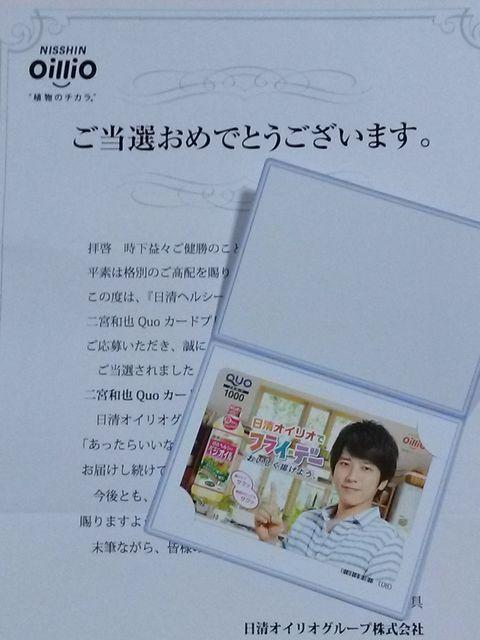 NISSHIN
OilliO
"植物のチカラ。"
ご当選おめでとうございます。
拝啓 時下益々ご健勝のこと
平素は格別のご高配を賜り
この度は、『日清ヘルシー
二宮和也 Quo カードプレ
ご応募いただき、誠に
ご当選されました
二宮和也 Quo カー
日清オイリオグ
「あったらいいな
お届けし続けて
今後とも、
賜りますよ
末筆ながら、皆様
具
日清オイリオグループ株式会社
QUO
1000
OilliO
日清オイリオで
フライ・デー
おいしく揚げよう。